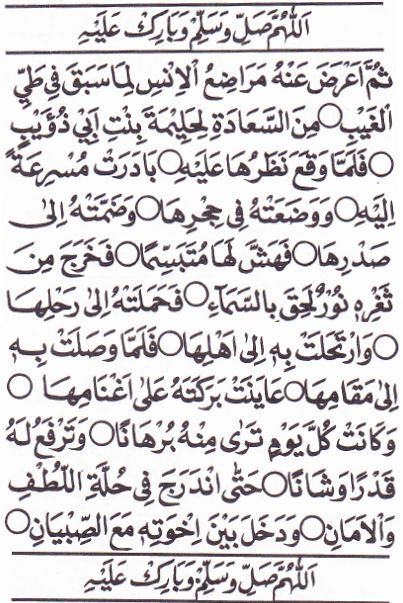 اَللّٰهُمَّ صَلِّ وَسَلِّمْ وَبَارِكْ عَلَيْهِ
ثُمَّ اَعْرَضَ عَنْهُ مَرَاضِعُ الْاِنْسِ لِمَا سَبَقَ فِيْ طَيِّ
الْغَيْبِ ○ مِنَ السَّعَادَةِ لِحَلِيْمَةَ بِنْتِ اَبِيْ ذُؤَيْبٍ
○ فَلَمَّا وَقَعَ نَظَرُهَا عَلَيْهِ ○ بَادَرَتْ مُسْرِعَةً
اِلَيْهِ ○ وَوَضَعَتْهُ فِيْ حِجْرِهَا ○ وَضَمَّتْهُ اِلٰى
صَدْرِهَا ○ فَهَشَّ لَهَا مُتَبَسِّمًا ○ فَخَرَجَ مِنْ
ثَغْرِهٖ نُوْرٌ لَحِقَ بِالسَّمَآءِ ○ فَحَمَلَتْهُ اِلٰى رَحْلِهَا
○ وَارْتَحَلَتْ بِهٖ اِلٰى اَهْلِهَا ○ فَلَمَّا وَصَلَتْ بِهٖ
اِلٰى مَقَامِهَا ○ عَايَنَتْ بَرَكَتَهُ عَلٰى اَغْنَامِهَا ○
وَكَانَتْ كُلَّ يَوْمٍ تَرٰى مِنْهُ بُرْهَانًا ○ وَتَرْفَعُ لَهُ
قَدْرًا وَشَانًا ○ حَتّٰى انْدَرَجَ فِيْ حُلَّةِ اللُّطْفِ
وَالْاَمَانِ ○ وَدَخَلَ بَيْنَ اِخْوَتِهٖ مَعَ الصِّبْيَانِ ○
اَللّٰهُمَّ صَلِّ وَسَلِّمْ وَبَارِكْ عَلَيْهِ